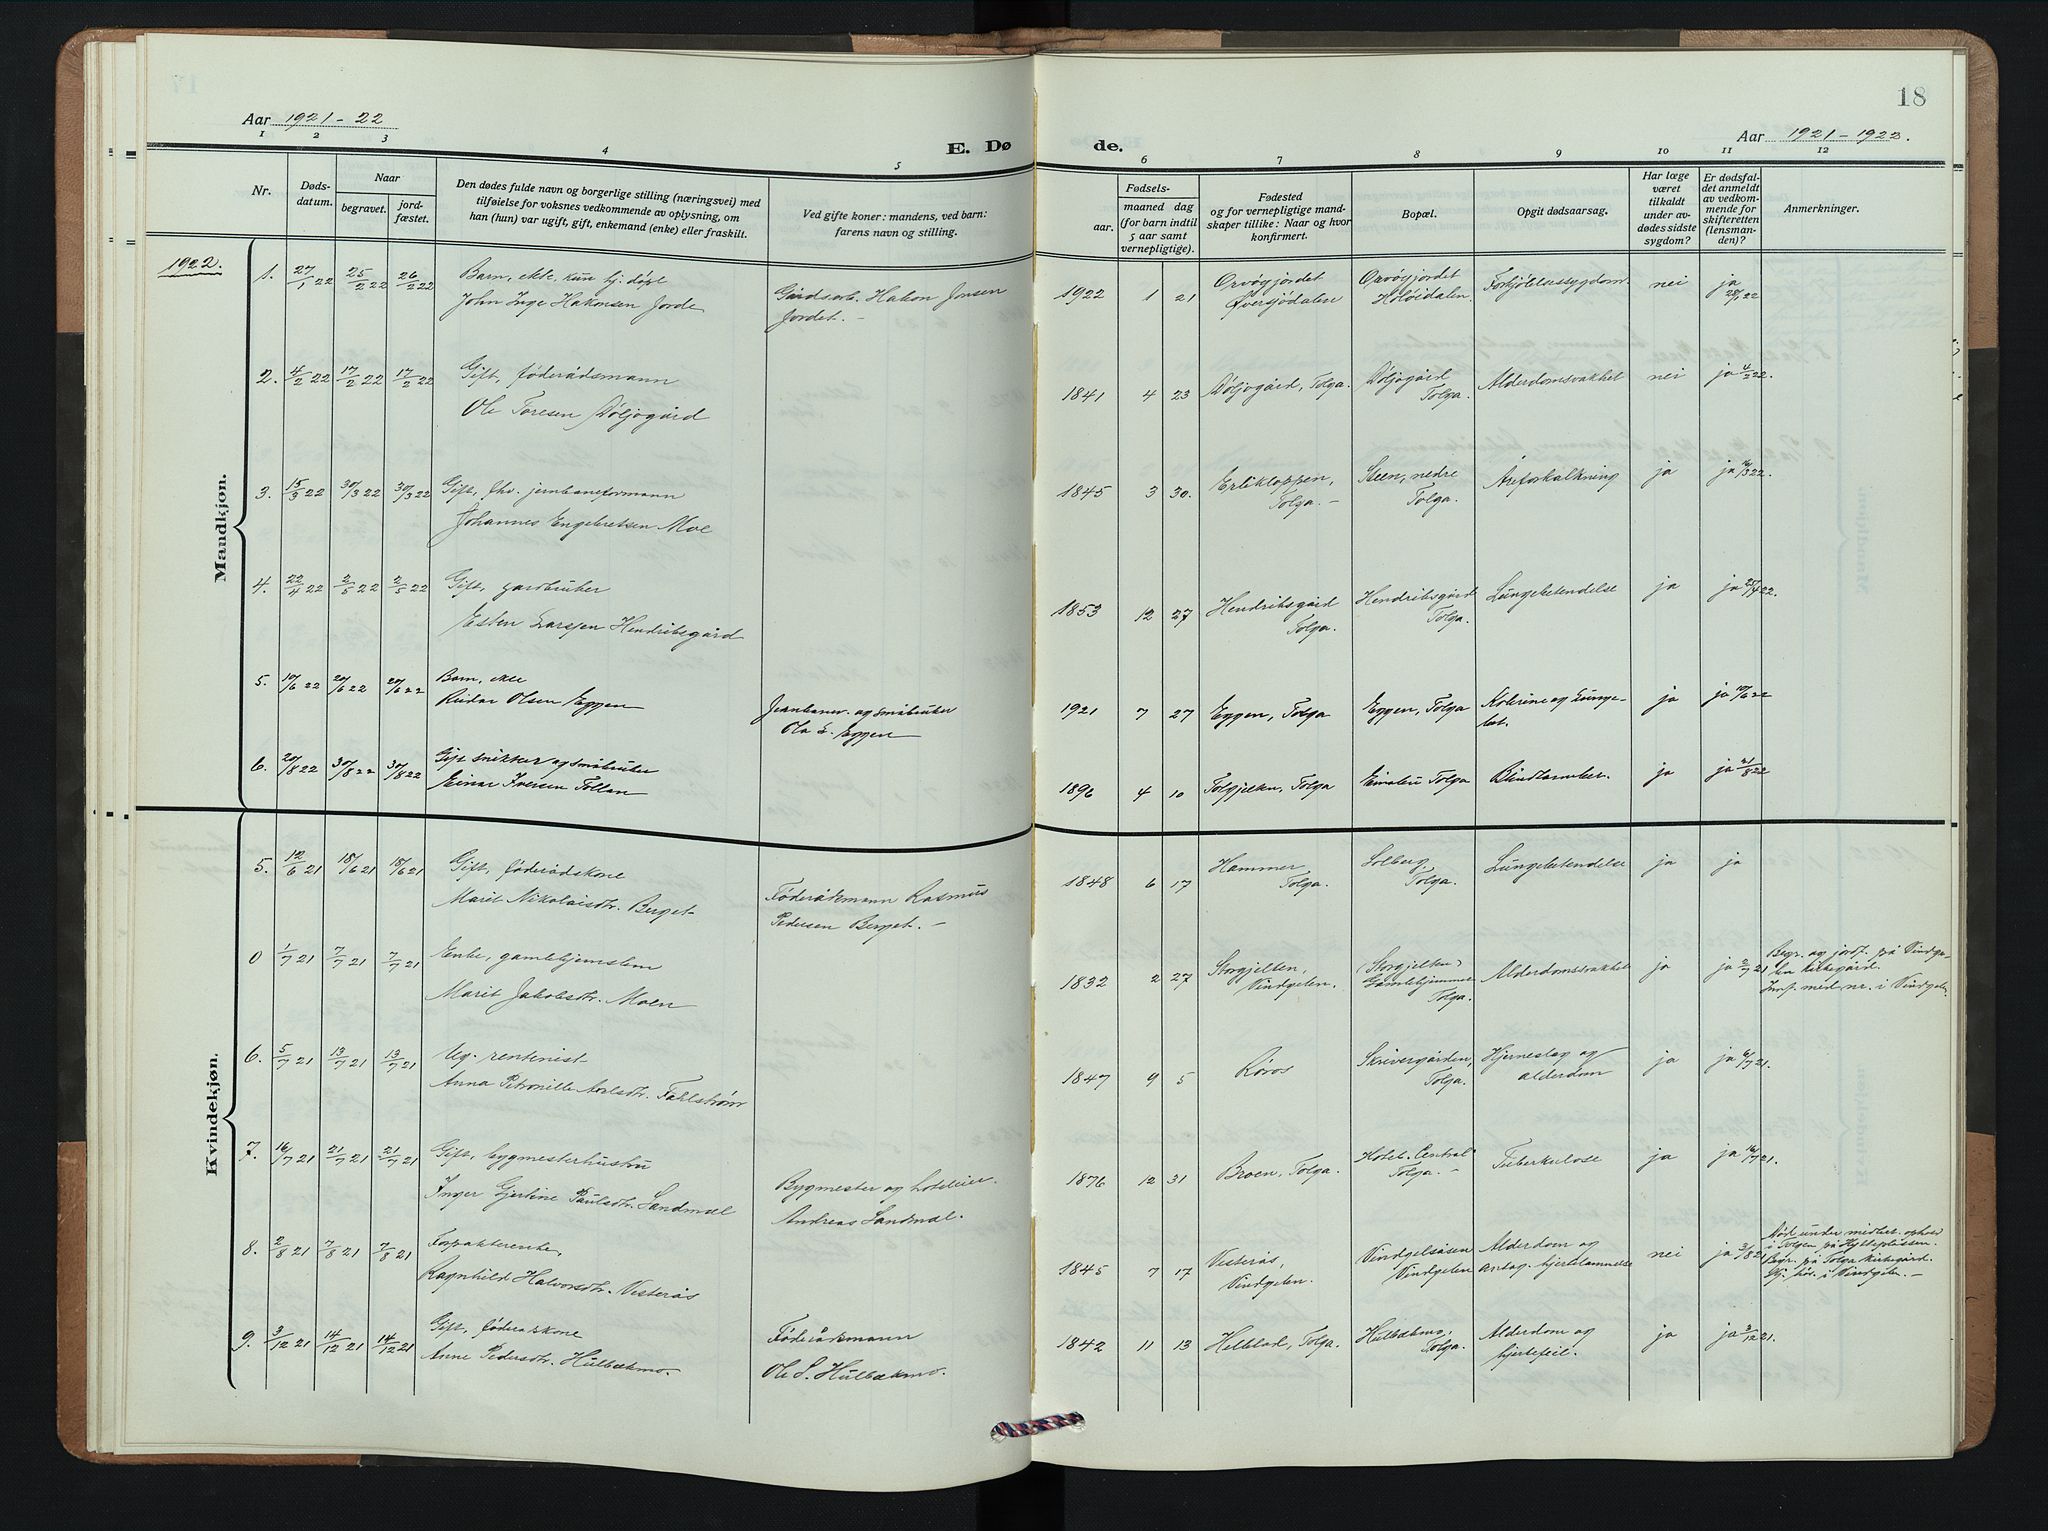 Aar 1921-22
E. Dø
de.
18
Aar 1921-1922.
1 2 3 4 5 6 7 8 9 10 11 12
Nr.
Døds-
datum.
Naar
begravet.
jord-
fæstet.
Den dødes fulde navn og borgerlige stilling (næringsvei) med
tilføielse for voksnes vedkommende av oplysning, om
han (hun) var ugift, gift, enkemand (enke) eller fraskilt.
Ved gifte koner: mandens, ved barn:
farens navn og stilling.
Fødsels-
aar.
maaned dag
(for barn indtil
5 aar samt
vernepligtige).
Fødested
og for vernepligtige mand-
skaper tillike: Naar og hvor
konfirmert.
Bopæl.
Opgit dødsaarsag.
Har læge
været
tilkaldt
under av-
dødes sidste
sygdom?
Er dødsfal-
det anmeldt
av vedkom-
mende for
skifteretten
(lensman-
den)?
Anmerkninger.
Mandkjøn.
1922.
1. 27/1 22 25/2 22 26/2 22 Barn, ekte, kun hj. døpt
John Inge Hakonsen Jorde
Gårdsarb. Hakon Jonsen
Jordet.-
1922 1 21 Orvøsjordet
Øversjødalen
Orvøsjordet
Holøidalen.
Forkjølelsessygdom. nei ja
28/1 22
2. 4/2 22 17/2 22 17/2 22 Gift, føderådsmann
Ole Toresen Døljogård
1841 4 23 Døljogård, Tolga. Døljogård
Tolga.
Alderdomssvakhet nei ja 4/2 22.
3. 15/3 22 30/3 22 30/3 22 Gift, fhv. jernbaneformann
Johannes Engebretsen Moe
1845 3 30. Erlikloppen,
Tolga.-
Steen, nedre
Tolga.
Åreforkalkning ja ja 16/3 22.
4. 22/4 22 2/5 22 2/5 22 Gift, gardbruker
Esten Larssen Hendriksgård
1853 12 27 Hendriksgård
Tolga.
Hendriksgård
Tolga.
Lungebetendelse ja ja 25/4 22.
5. 10/6 22 20/6 22 20/6 22 Barn, ekte
Reidar Olsen Eggen
Jernbanev. og småbruker
Ola E. Eggen
1921 7 27 Eggen, Tolga Eggen, Tolga Kolerine og Lunge-
bet.
ja ja 10/6 22
6. 20/8 22 30/8 22 30/8 22 Gift snikker og småbruker
Einar Iversen Tollan
1896 4 10 Tolgjelen, Tolga Tolga Blindtarmbet. ja ja 21/8 22
Kvindekjøn.
5. 12/6 21 18/6 21 18/6 21 Gift, føderådskone
Marit Nikolaisdtr. Berget
Føderådsmann Rasmus
Pedersen Berget.-
1848 6 17 Hammer
Tolga.
Solberg,
Tolga.
Lungebetendelse ja ja
0 1/7 21 7/7 21 7/7 21 Enke, gamlehjemslem
Marit Jakobsdtr. Moen
1832 2 27 Storgjelten,
Vindgelen.
(Storgjelten)
Gamlehjemmet
Tolga.
Alderdomssvakhet ja ja 2/7 21 Begr. og jordf. på Vindge-
len kirkegård.
Innf. med nr. i Vindgelen.
6. 5/7 21 13/7 21 13/7 21 Ug. rentenist
Anna Petronille Axelsdtr. Fahlstrøm
1847 9 5 Røros Skrivergården,
Tolga.
Hjerneslag og
alderdom
ja ja 6/7 21.
7. 16/7 21 21/7 21 21/7 21 Gift, bygmesterhustru
Inger Gjertine Paulsdtr. Sandmæl
Bygmester og hoteleier
Andreas Sandmæl.
1876 12 31 Broen, Tolga. Hotel Central
Tolga.-
Tuberkulose ja ja 16/7 21.
8. 2/8 21 7/8 21 7/8 21 Forpakterenke,
Ragnhild Halvorsdtr. Vesterås
1845 7 17 Vesterås,
Vindgelen.
Vindgelsåsen
Vindgelen
Alderdom og
antag. hjertelammelse
nei ja 3/8 21 Død under midlert. ophold
i Tolgen på Hytteplassen.
Begr. på Tolga kirkegård.
i Vindgelen.-
9. 3/12 21 14/12 21 14/12 21 Gift, føderåskone
Anne Pedersdtr. Hulbækmo.
Føderåtsmann
Ole S. Hulbækmo.
1842 11 13 Helstad, Tolga. Hulbækmo,
Tolga.
Alderdom og
hjertefeil.
ja ja 3/12 21.